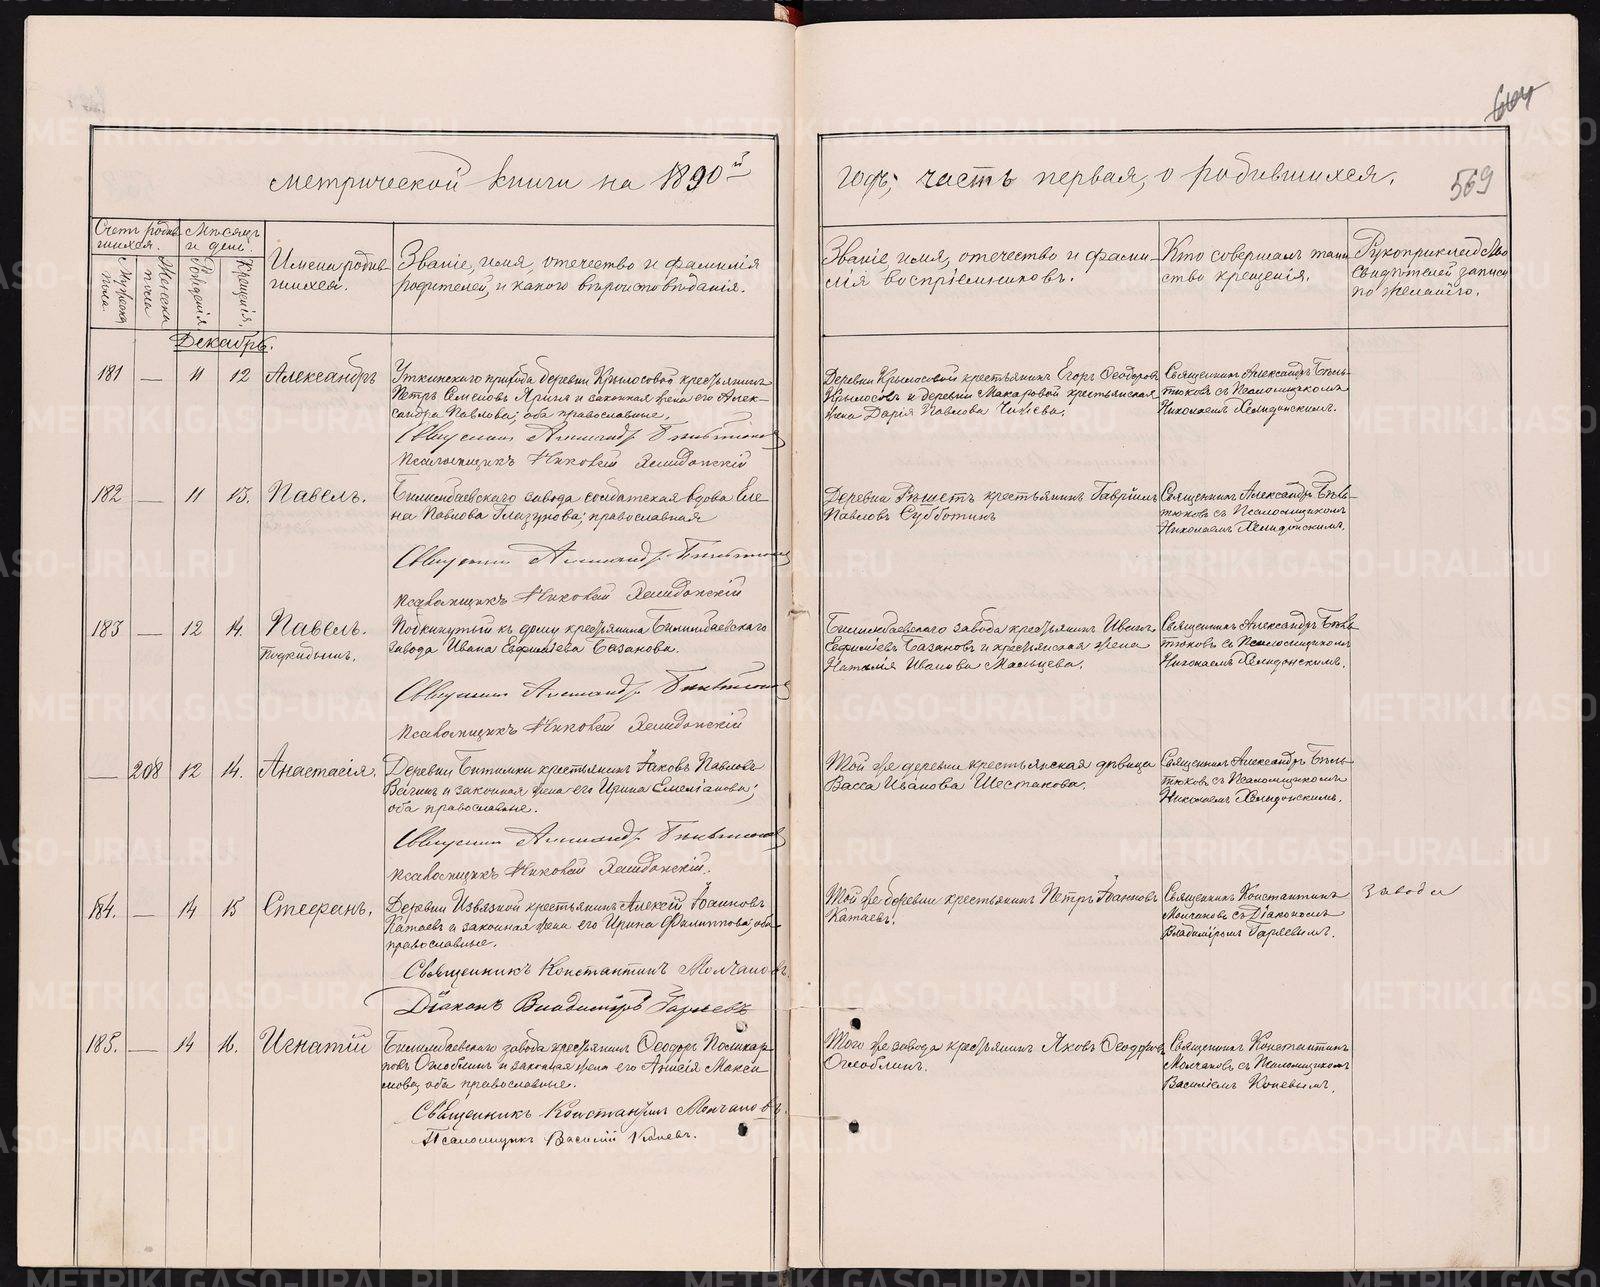 604
метрической книги на 1890й
годъ, часть первая, о родившихся.
569
Счетъ родив-
шихся.
Мужеска
пола.
Женска
пола
Мѣсяцъ
и день.
Рожденія
Крещенія.
Имена родив-
шихся.
Званіе, имя, отечество и фамилія
родителей, и какого вѣроисповѣданія.
Званіе, имя, отечество и фами-
лія воспріемниковъ.
Кто совершалъ таин
ство крещенія.
Рукоприкладство
свидѣтелей записи
по желанію.
Декабрь.
181 — 11 12 Александръ
Уткинскаго прихода деревни Крылосовой крестьянинъ
Петръ Семеновъ и законная жена его Алек-
сандра Павлова; оба православные.
Священникъ Александръ Бѣльтюковъ
Псаломщикъ Николай Хелидонскій
Деревни Крылосовой крестьянинъ Егоръ Ѳеодоровъ
Крылосовъ и деревни Макаровой крестьянская
жена Дарія Павлова
Священникъ Александръ Бѣль-
тюковъ съ Псаломщикомъ
Николаемъ Хелидонскимъ.
182 — 11 13. Павелъ.
Билимбаевскаго завода солдатская вдова Еле-
на Павлова Глазунова; православная
Священникъ Александръ Бѣльтюковъ
Псаломщикъ Николай Хелидонскій
Деревни Рѣшетъ крестьянинъ Гавріилъ
Павловъ Субботинъ
Священникъ Александръ Бѣль-
тюковъ съ Псаломщикомъ
Николаемъ Хелидонскимъ.
183 — 12 14. Павелъ.
Подкидышъ.
Подкинутый къ дому крестьянина Билимбаевскаго
завода Ивана Евфиміева Базанова.
Священникъ Александръ Бѣльтюковъ
Псаломщикъ Николай Хелидонскій
Билимбаевскаго завода крестьянинъ Иванъ
Евфиміевъ Базановъ и крестьянская жена
Наталія Иванова Мальцева.
Священникъ Александръ Бѣль-
тюковъ съ Псаломщикомъ
Николаемъ Хелидонскимъ.
— 208 12 14. Анастасія.
Деревни Битимки крестьянинъ Іаковъ Павловъ
и законная жена его Ирина Емеліанова;
оба православные.
Священникъ Александръ Бѣльтюковъ
Псаломщикъ Николай Хелидонскій.
Той же деревни крестьянская дѣвица
Васса Иванова Шестакова.
Священникъ Александръ Бѣль-
тюковъ съ Псаломщикомъ
Николаемъ Хелидонскимъ.
184. — 14 15 Стефанъ.
Деревни Извязной крестьянинъ Алексій Іоанновъ
Катаевъ и законная жена его Ирина Филиппова; оба
православные.
Священникъ Константинъ Молчановъ.
Діаконъ Владиміръ Гаряевъ
Той же деревни крестьянинъ Петръ Іоанновъ
Катаевъ.
Священникъ Константинъ
Молчановъ съ Діакономъ
Владиміромъ Гаряевымъ.
завода
185. — 14 16. Игнатій
Билимбаевскаго завода крестьянинъ Ѳеодоръ Поликар-
повъ Оглоблинъ и законная жена его Анисія Макси-
мова; оба православные.
Священникъ Константинъ Молчановъ.
Псаломщикъ Василій Коневъ.
Того же завода крестьянинъ Яковъ Ѳеодоровъ
Оглоблинъ.
Священникъ Константинъ
Молчановъ съ Псаломщикомъ
Василіемъ Коневымъ.
METRIKI.GASO-URAL.RU